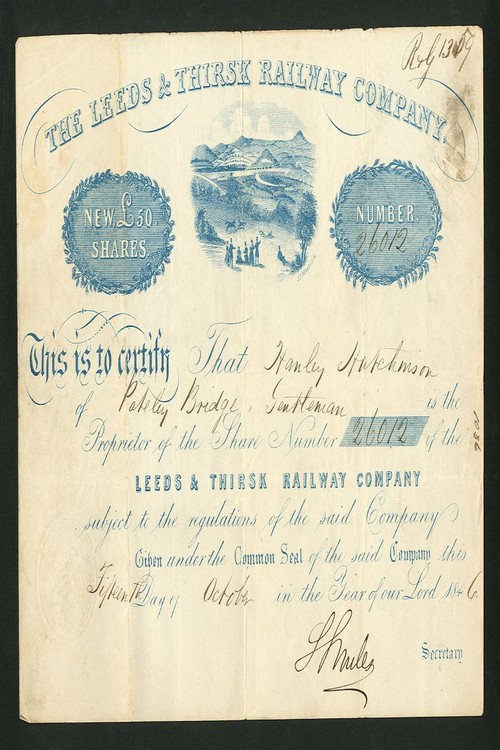 THE LEEDS & THIRSK RAILWAY COMPANY.
NEW £50
SHARES.
NUMBER.
26012
This is to certify That Hanley Hutchinson
of Pateley Bridge, Gentleman is the
Proprietor of the Share Number 26012 of the
LEEDS & THIRSK RAILWAY COMPANY
subject to the regulations of the said Company
Given under the Common Seal of the said Company this
Fifteenth Day of October in the Year of our Lord 1846.
Secretary